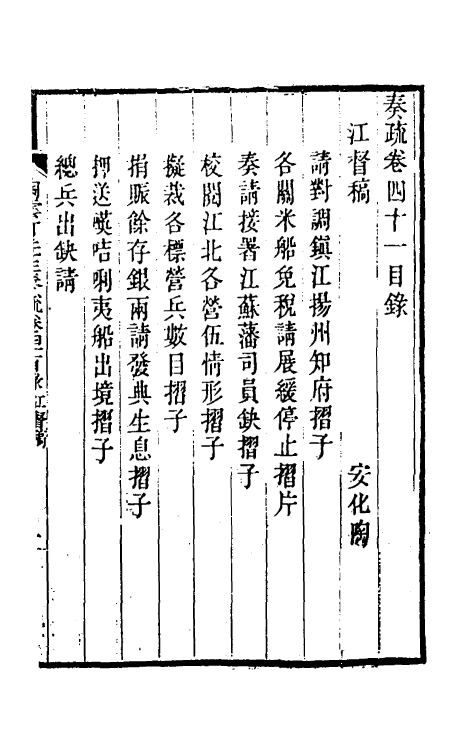 奏疏卷四十一目錄
江督稿　安化陶
請對調鎮江揚州知府摺子
各關米船免稅請展緩停止摺片
奏請接署江蘇藩司員缺摺子
校閱江北各營伍情形摺子
擬裁各標營兵數目摺子
捐賑餘存銀兩請發典生息摺子
押送𠸄咭唎夷船出境摺子
總兵出缺請